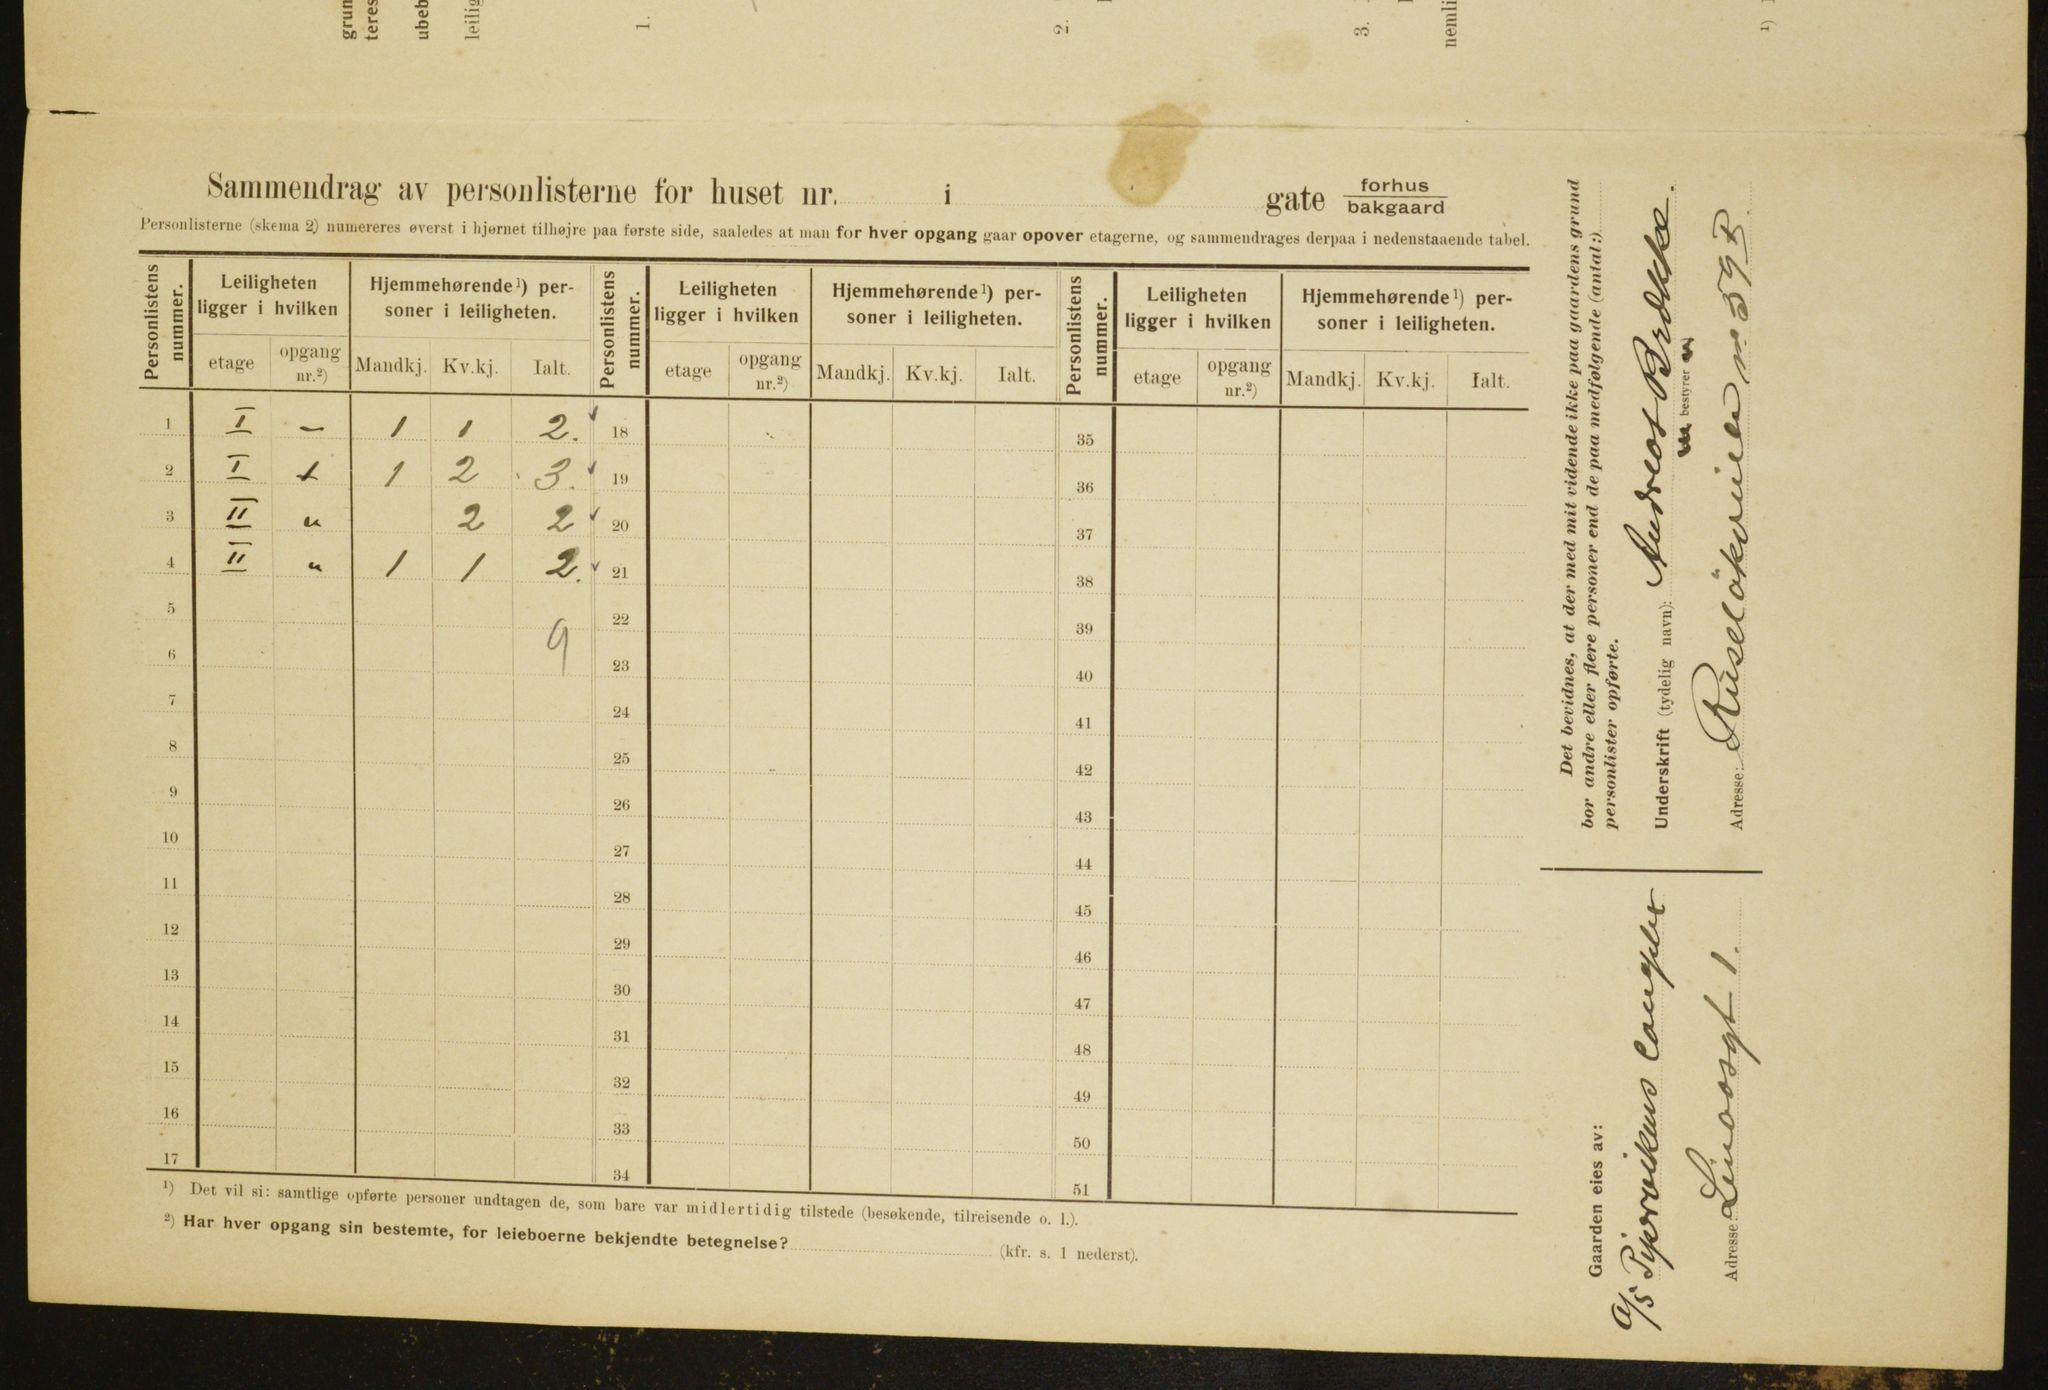 grun
teres
ubeb
leilig
1.
2.
3.
nemli
1)
Sammendrag av personlisterne for huset nr. i gate forhus bakgaard
Personlisterne (skema 2) numereres øverst i hjørnet tilhøjre paa første side, saaledes at man for hver opgang gaar opover etagerne, og sammendrages derpaa i nedenstaaende tabel.
Personlistens nummer. Leiligheten ligger i hvilken Hjemmehørende¹) personer i leiligheten. Personlistens nummer. Leiligheten ligger i hvilken Hjemmehørende¹) personer i leiligheten. Personlistens nummer. Leiligheten ligger i hvilken Hjemmehørende¹) personer i leiligheten.
etage opgang nr.²) Mandkj. Kv.kj. Ialt. etage opgang nr.²) Mandkj. Kv.kj. Ialt. etage opgang nr.²) Mandkj. Kv.kj. Ialt.
1 I – 1 1 2. 18 35
2 I 1 2 3. 19 36
3 II " 2 2 20 37
4 II " 1 1 2. 21 38
5 22 39
9
6 23 40
7 24 41
8 25 42
9 26 43
10 27 44
11 28 45
12 29 46
13 30 47
14 31 48
15 32 49
16 33 50
17 34 51
¹) Det vil si: samtlige opførte personer undtagen de, som bare var midlertidig tilstede (besøkende, tilreisende o. l.).
²) Har hver opgang sin bestemte, for leieboerne bekjendte betegnelse? (kfr. s. 1 nederst).
Det bevidnes, at der med mit vidende ikke paa gaardens grund
bor andre eller flere personer end de paa medfølgende (antal:)
personlister opførte.
Underskrift (tydelig navn): Andreas Brække.
bestyrer
Adresse: Ruseløkveien nr 59 B.
Gaarden eies av:
A/S Pipervikens Compleks
Adresse Linosgt 1.